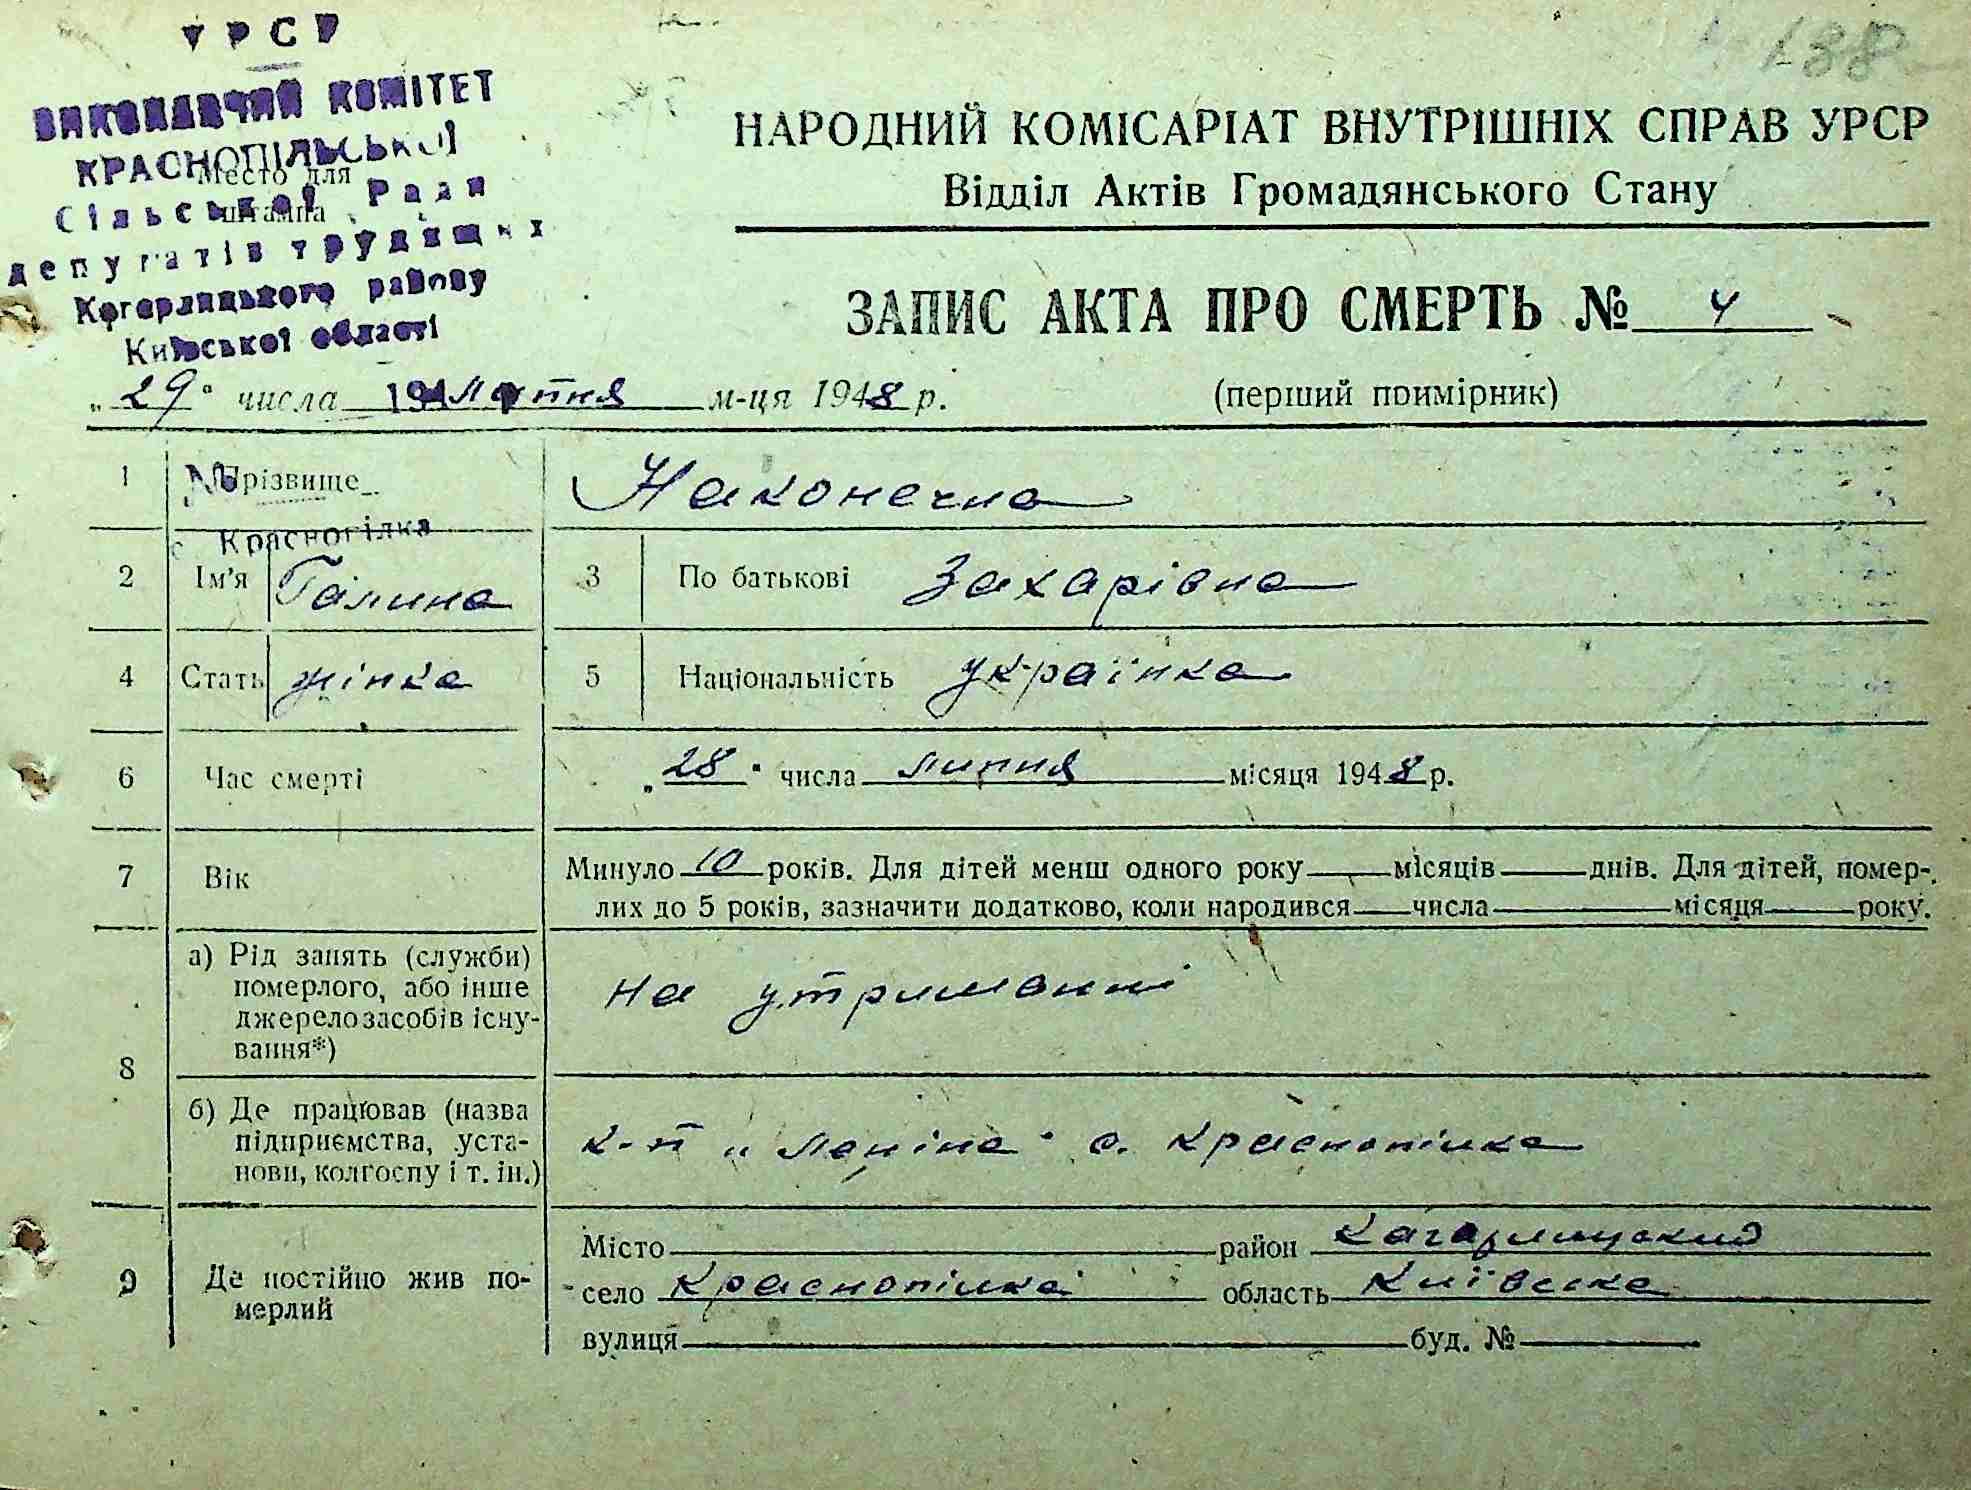 УРСР
ВИКОНАВЧИЙ КОМІТЕТ
КРАСНОПІЛЬСЬКОЇ
Место для
штампа
Сільської Ради
депутатів трудящих
Кагарлицького району
Київської області
138
НАРОДНИЙ КОМІСАРІАТ ВНУТРІШНІХ СПРАВ УРСР
Відділ Актів Громадянського Стану
ЗАПИС АКТА ПРО СМЕРТЬ № 4
„29“ числа 194 м-ця 1948 р. (перший примірник)
1 Прізвище Наконечна
с Краснопілка
2 Ім’я Галина 3 По батькові Захарівна
4 Стать жінка 5 Національність українка
6 Час смерті „28“ числа липня місяця 1948 р.
7 Вік Минуло 10 років. Для дітей менш одного року місяців днів. Для дітей, помер-
лих до 5 років, зазначити додатково, коли народився числа місяця року.
8 а) Рід занять (служби)
померлого, або інше
джерело засобів існу-
вання*) на утриманні
б) Де працював (назва
підприємства, уста-
нови, колгоспу і т. ін.) к-п „Леніна“ с. Краснопілка
9 Де постійно жив по-
мерлий
Місто район Кагарлицький
село Краснопілка область Київська
вулиця буд. №